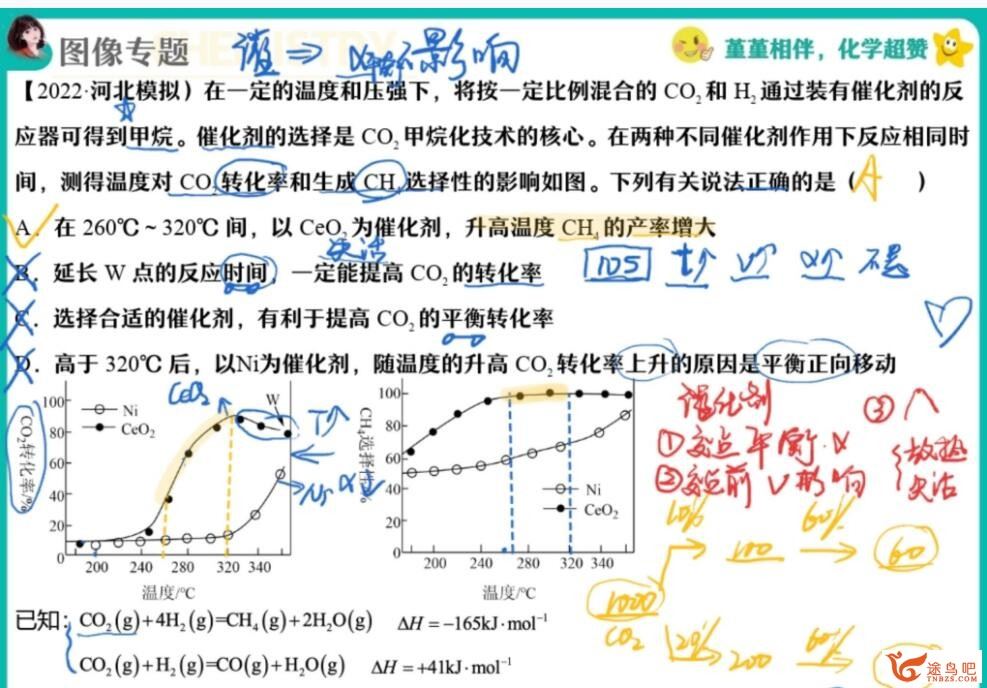 图像专题
催 ⇒ α平衡不影响
董董相伴，化学超赞
【2022·河北模拟）在一定的温度和压强下，将按一定比例混合的 CO₂ 和 H₂ 通过装有催化剂的反
应器可得到甲烷。催化剂的选择是 CO₂ 甲烷化技术的核心。在两种不同催化剂作用下反应相同时
间，测得温度对 CO₂ 转化率和生成 CH₄ 选择性的影响如图。下列有关说法正确的是（ A ）
A．在 260℃～320℃ 间，以 CeO₂ 为催化剂，升高温度 CH₄ 的产率增大
失活
B．延长 W 点的反应时间，一定能提高 CO₂ 的转化率
10s t↑ v↑ α↑
C．选择合适的催化剂，有利于提高 CO₂ 的平衡转化率
D．高于 320℃ 后，以Ni为催化剂，随温度的升高 CO₂ 转化率上升的原因是平衡正向移动
CO₂转化率/%
100
80
60
40
20
0
Ni
CeO₂
CeO₂
W
T↑
Ni α
200 240 280 320 340
温度/℃
CH₄选择性/%
100
80
60
40
20
0
Ni
CeO₂
200 240 280 320 340
温度/℃
催化剂
①交点平衡 α
②交点前 v影响
③
放热
失活
10% 60%
100 60
1000
CO₂ 20% 200 60%
已知：CO₂(g)+4H₂(g)=CH₄(g)+2H₂O(g) ΔH=−165kJ·mol⁻¹
CO₂(g)+H₂(g)=CO(g)+H₂O(g) ΔH=+41kJ·mol⁻¹
途鸟吧
TNBZS.COM